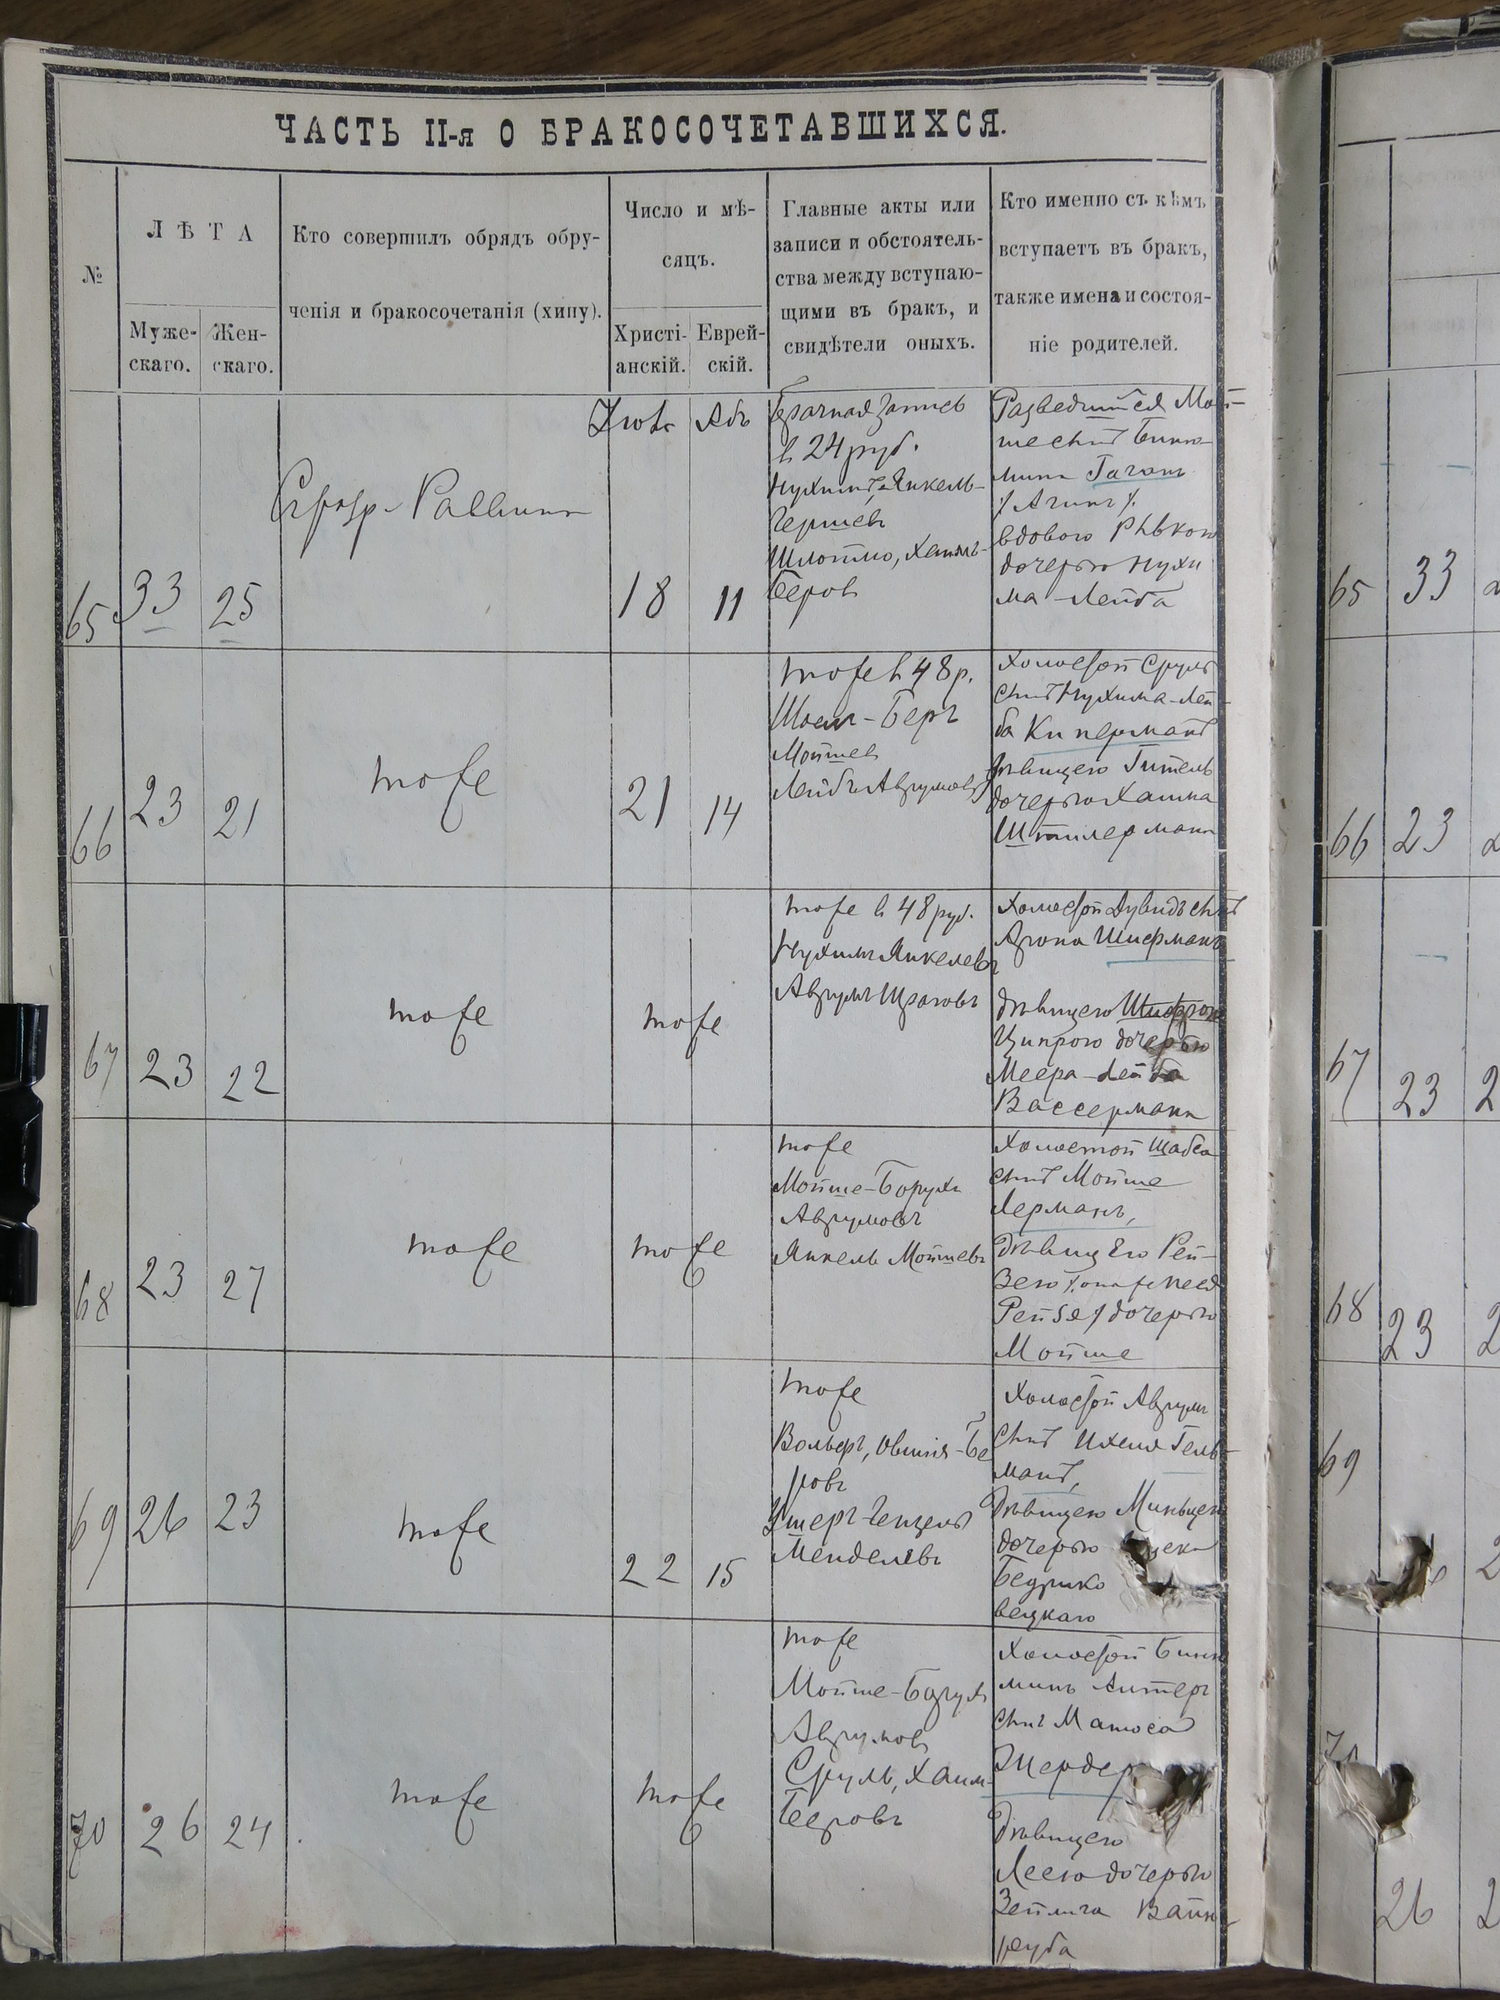 ЧАСТЬ II-я О БРАКОСОЧЕТАВШИХСЯ.
№
ЛѢТА
Муже-
скаго.
Жен-
скаго.
Кто совершилъ обрядъ обру-
ченія и бракосочетанія (хипу).
Число и мѣ-
сяцъ.
Христі-
анскій.
Еврей-
скій.
Главные акты или
записи и обстоятель-
ства между вступаю-
щими въ бракъ, и
свидѣтели оныхъ.
Кто именно съ кѣмъ
вступаетъ въ бракъ,
также имена и состоя-
ніе родителей.
65
33
25
Раввинъ
Абъ
18
11
Брачная запись
в 24 руб.
Нухимъ, Янкель-
Гершевъ
Шлоймо, Хаимъ-
Беровъ
Разведшійся Мой-
ше сынъ Биню-
мина Гаганъ
вдовою Рывкою
дочерью Нухи
ма-Лейба
66
23
21
тоже
21
14
тоже в 48 р.
Беръ
Мойшев
Лейбъ Аврумовъ
Холостой Сруль
сынъ Нухима-Лей-
ба Киперманъ
дѣвицею Гитель
дочерью Хаима
Штилерманъ
67
23
22
тоже
тоже
тоже в 48 руб.
Нухимъ Янкелевъ
Аврумъ Шраговъ
Холостой Дувидъ сынъ
Арона Шифманъ
дѣвицею
Ципрою дочерью
Меера-Лейба
Вассермана
68
23
27
тоже
тоже
тоже
Мойше-Борухъ
Аврумовъ
Янкель Мойшевъ
Холостой Шабса
сынъ Мойше
Лерманъ,
дѣвицею Рей-
зею
Рейзя) дочерью
Мойше
69
26
23
тоже
22
15
тоже
Вольфъ, Овшія-Бе
ровъ
Менделевъ
Холостой Аврумъ
сынъ Ихеля Гель-
манъ,
дѣвицею Миньцею
дочерью
Бедрико
вецкаго
70
26
24
тоже
тоже
тоже
Мойше-Борухъ
Аврумов
Сруль, Хаим-
Беровъ
Холостой Биню
минъ Антеръ
сынъ Матоса
дѣвицею
Леею дочерью
Зейлига Вайн
руба
65
33
66
23
67
23
2
68
23
2
69
2
70
26
2